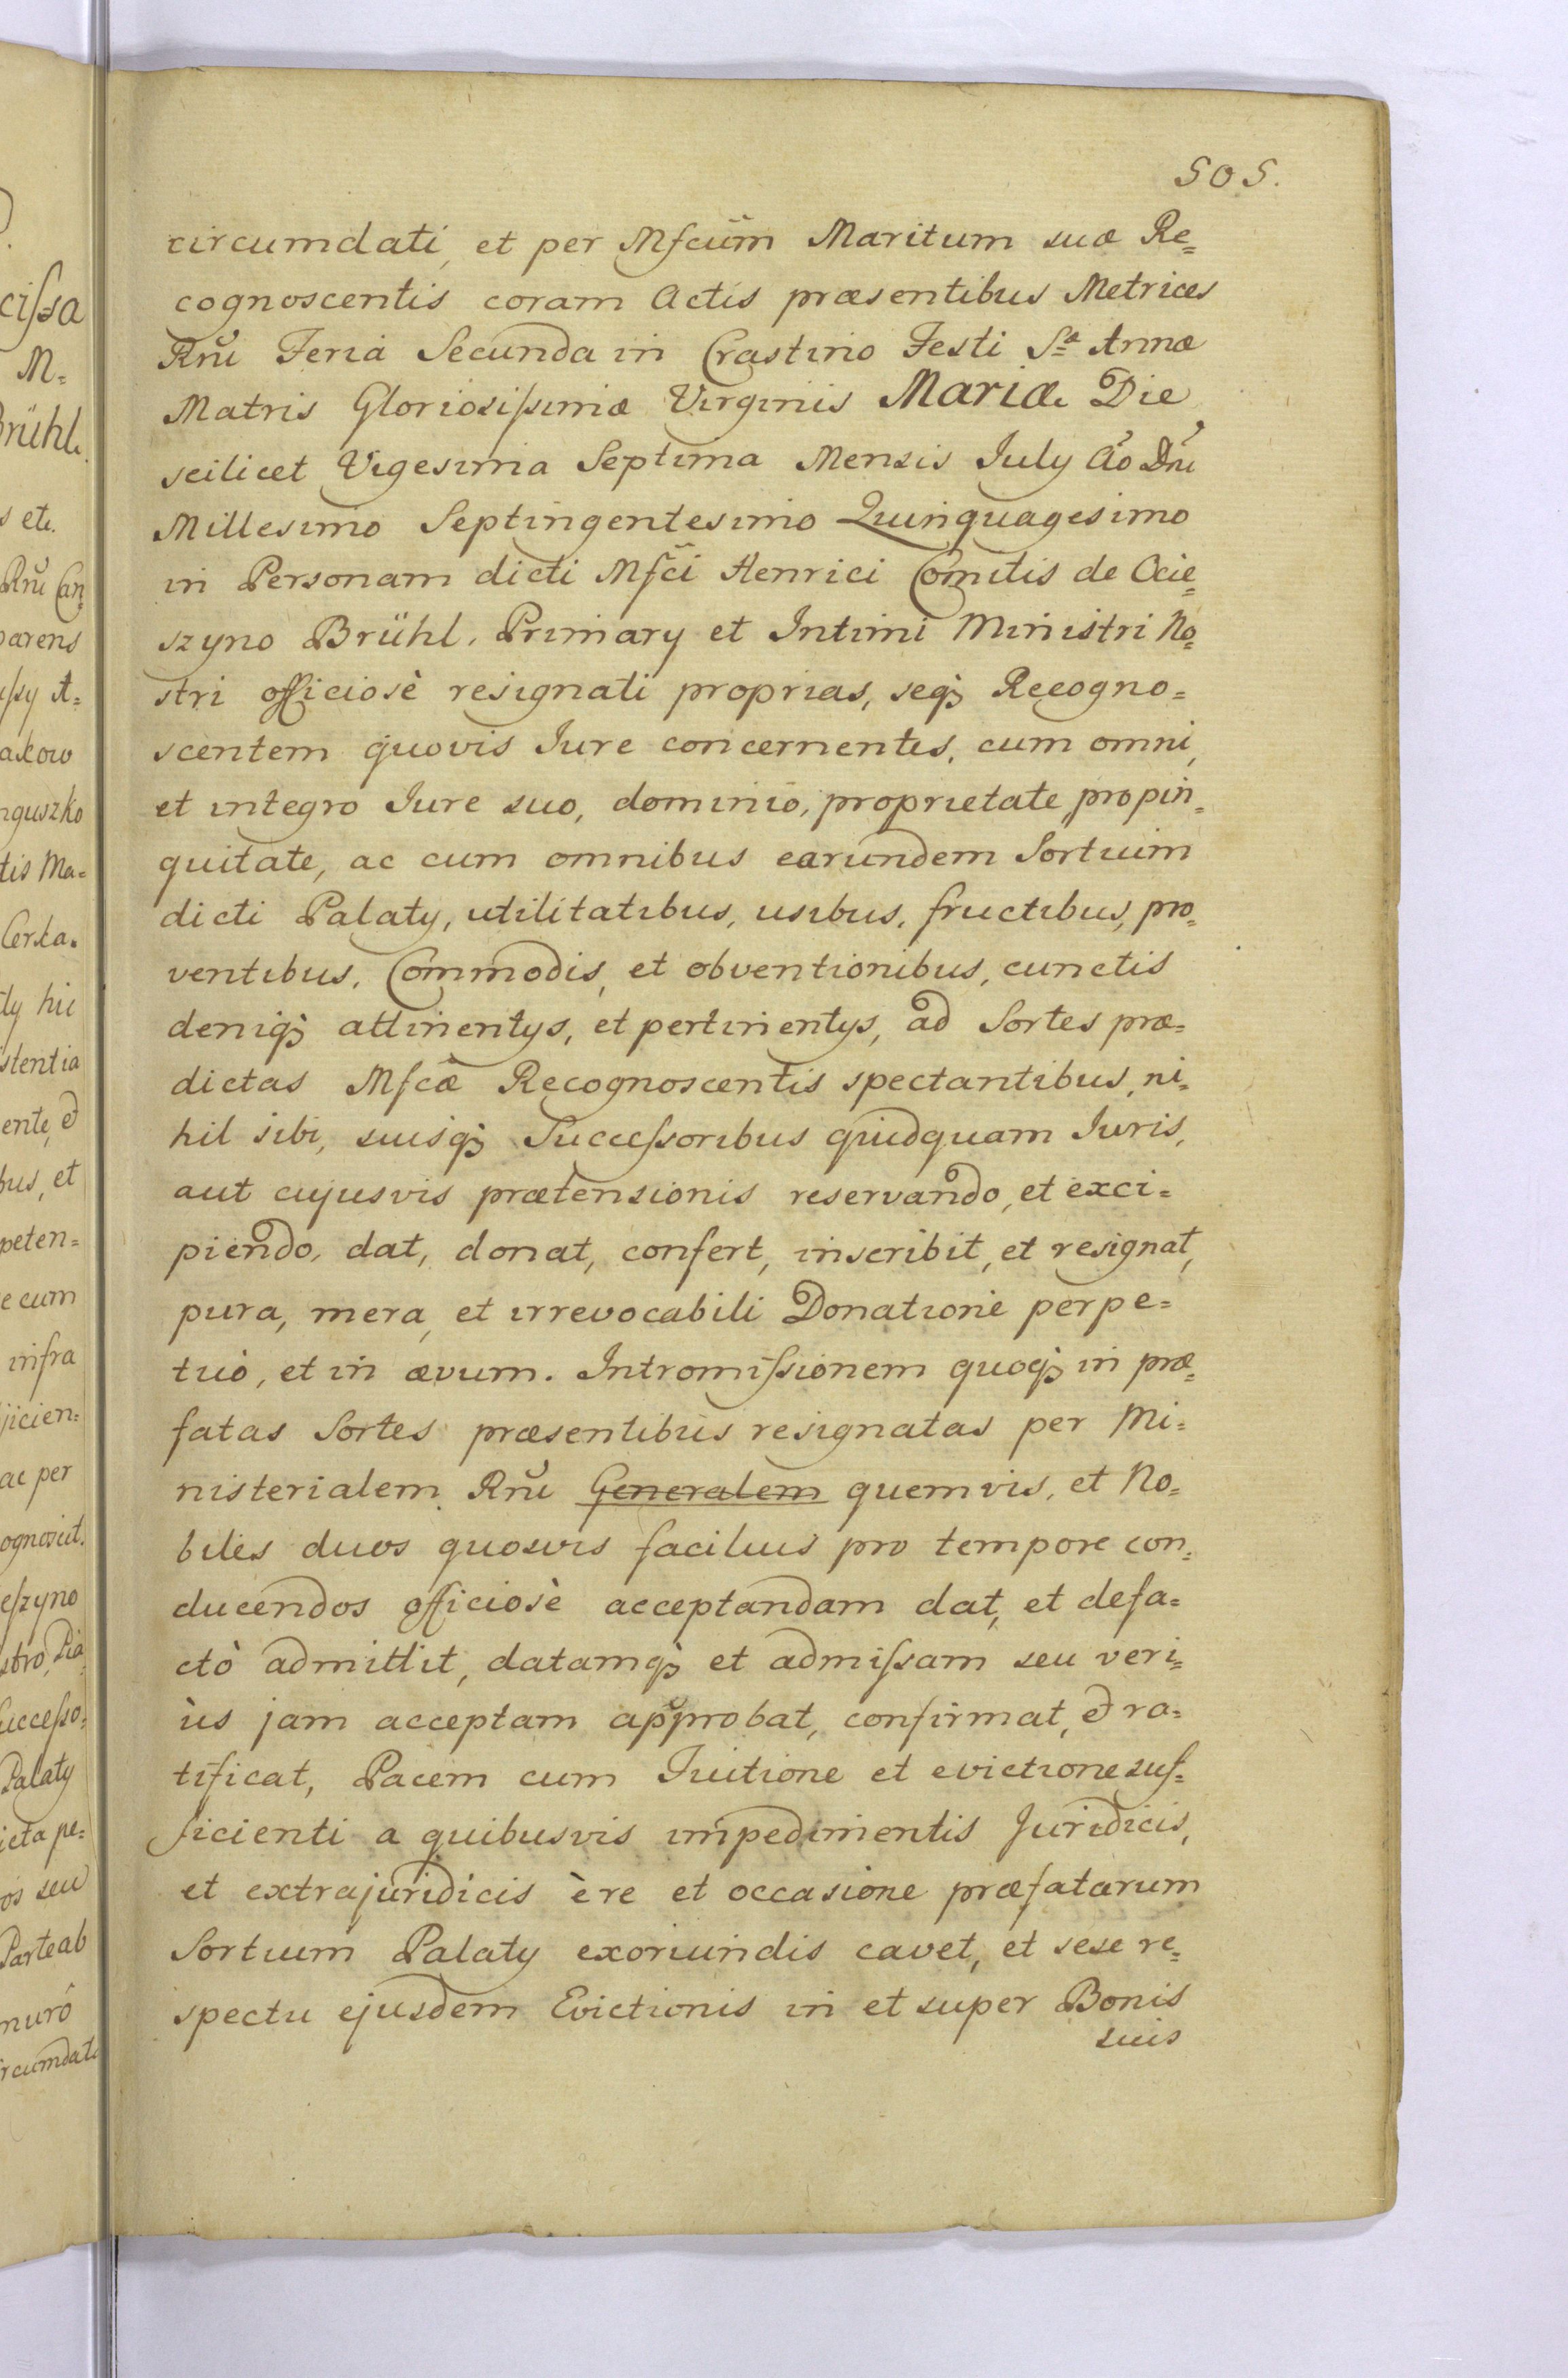 505.
circumdati, et per Mſcūm Maritum suæ Re=
cognoscentis coram Actis præsentibus Metrices
Rnĭ Feria Secunda in Crastino Festi Sæ Annæ
Matris Gloriosiſsimæ Virginis Mariæ Die
scilicet Vigesima Septima Mensis July Aō Dnī
Millesimo Septingentesimo Quinquagesimo
in Personam dicti Mſc̄i Henrici Comitis de Ocie=
szyno Brühl, Primary et Intimi Ministri No=
stri officiosè resignati proprias, seq3 Recogno=
scentem quovis Iure concernentes, cum omni,
et integro Iure suo, dominio, proprietate, propin=
quitate, ac cum omnibus earundem Sortium
dicti Palaty, utilitatibus, usibus, fructibus, pro=
ventibus, Commodis, et obventionibus, cunctis
deniq3 attinentys, et pertinentys, ad Sortes præ=
dictas Mſcæ̃ Recognoscentis spectantibus, ni=
hil sibi, suisq3 Succeſsoribus quidquam Iuris,
aut cujusvis prætensionis reservando, et exci=
piendo, dat, donat, confert, inscribit, et resignat,
pura, mera, et irrevocabili Donatione perpe=
tuò, et in ævum. Intromiſsionem quoq3 in præ=
fatas Sortes præsentibus resignatas per Mi=
nisterialem Rnĭ Generalem quemvis, et No=
biles duos quosvis facilius pro tempore con=
ducendos officiosè acceptandam dat, et defa=
ctò admittit, datamq3 et admiſsam seu veri=
ùs jam acceptam approbat, confirmat, et ra=
tificat, Pacem cum Tuitione et evictione suf=
ficienti a quibusvis impedimentis Juridicis,
et extrajuridicis ère et occasione præfatarum
Sortium Palaty exoriundis cavet, et sese re=
spectu ejusdem Evictionis in et super Bonis
suis